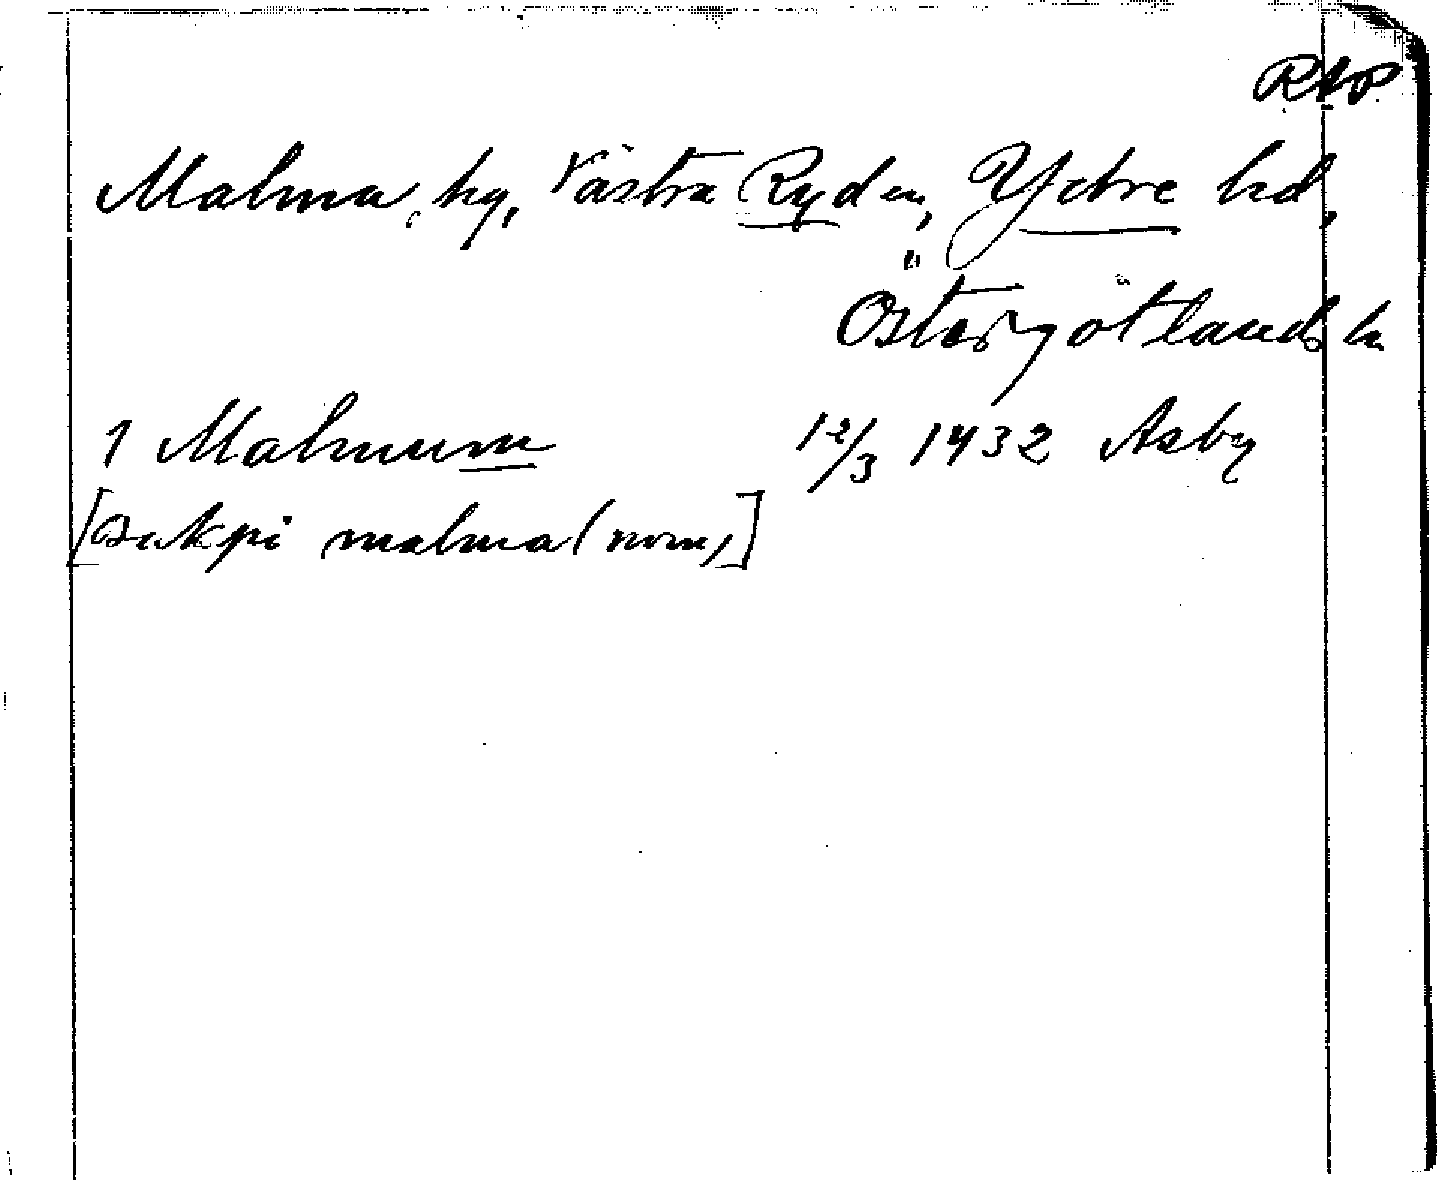 RAP
Malma, hg, Västra Ryd sn, Ydre hd,
Östergötlands l.
1 Malmum 12/3 1432 Asby
malma (nom,]